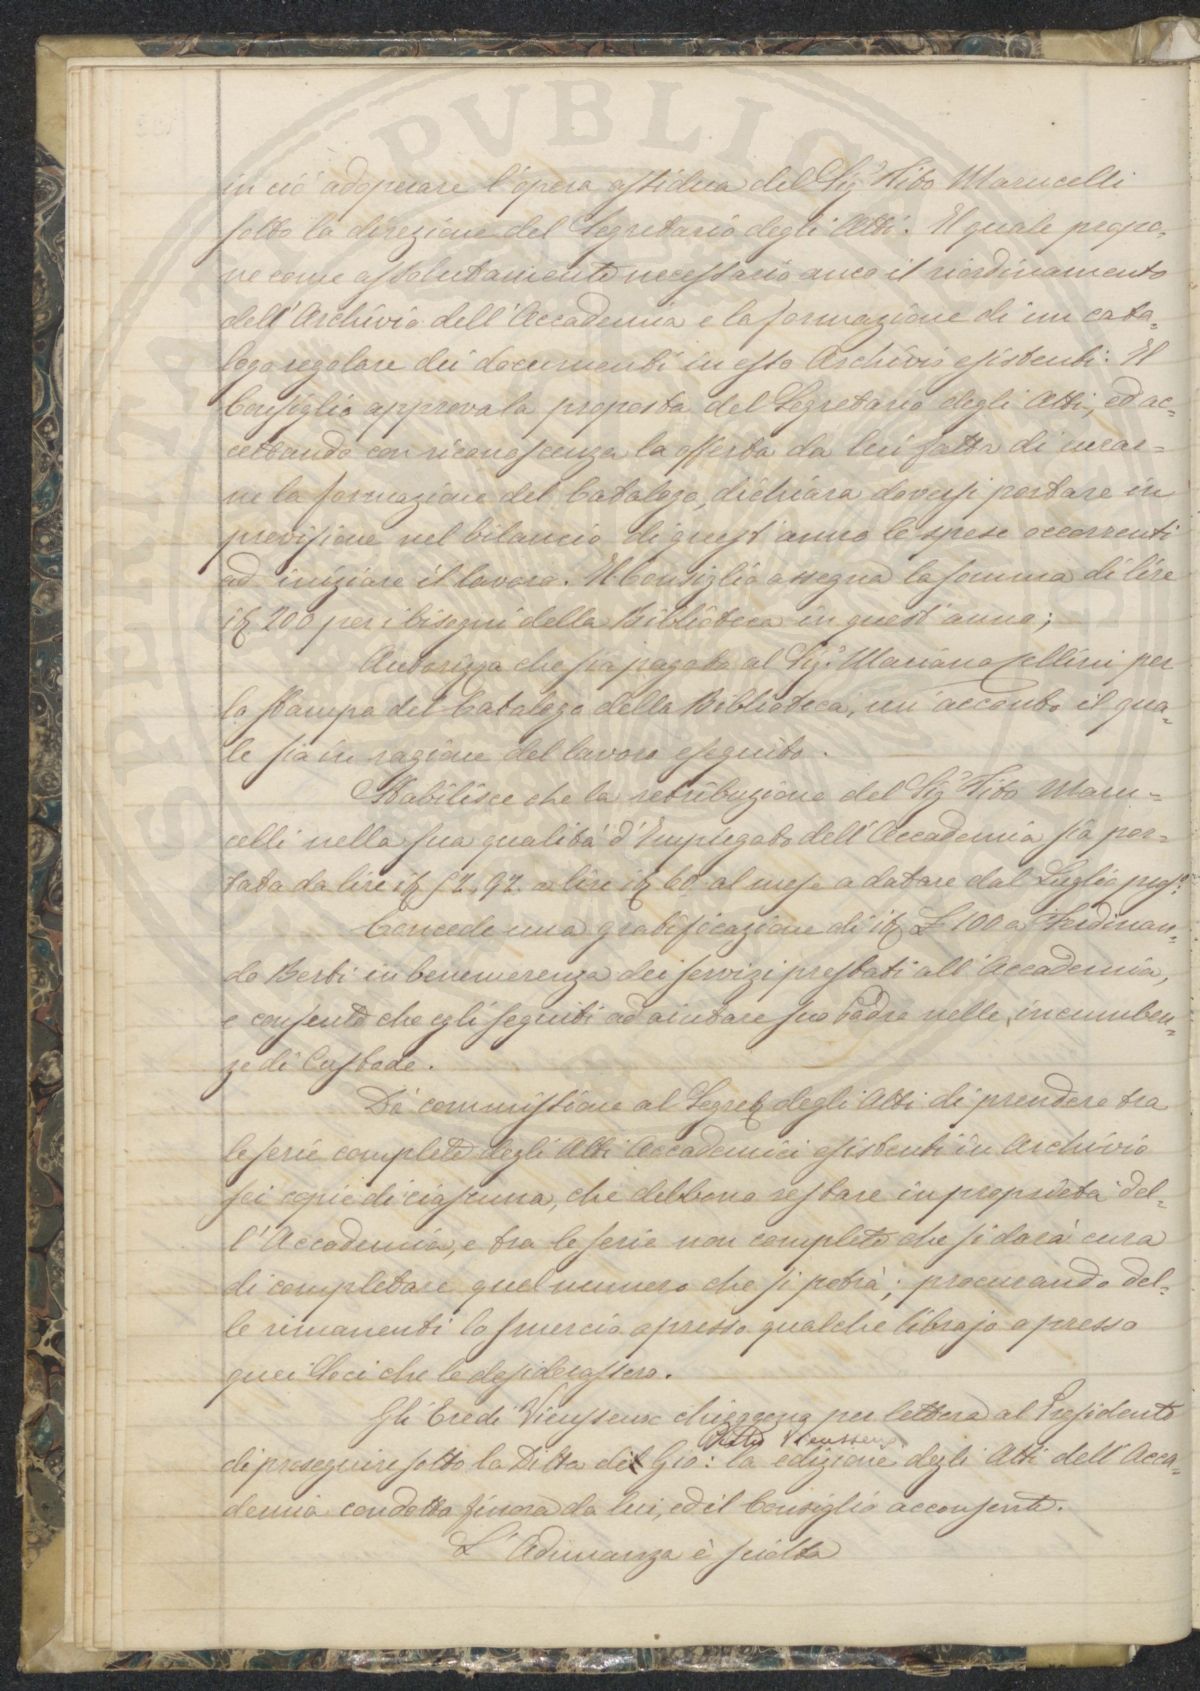 in ciò adoperare l'opera assidua del Sig.r Tito Marucelli
sotto la direzione del Segretario degli Atti. Il quale propo=
ne come assolutamente necessario anco il riordinamento
dell'Archivio dell'Accademia e la formazione di un cata=
logo regolare dei documenti in esso Archivio esistenti. Il
Consiglio approva la proposta del Segretario degli Atti, ed ac=
cettando con riconoscenza la offerta da lui fatta di incar=
ne la formazione del Catalogo, dichiara doversi portare in
previsione nel bilancio di quest'anno le spese occorrenti
ad iniziare il lavoro. Il Consiglio assegna la somma di lire
it. 200 per i bisogni della Biblioteca in quest'anno;
Autorizza che sia pagato al Sig.r Mariano Cellini per
la stampa del Catalogo della Biblioteca, un acconto il qua=
le sia in ragione del lavoro eseguito.
Stabilisce che la retribuzione del Sig.r Tito Maru=
celli nella sua qualità d'Impiegato dell'Accademia sia por=
tata da lire it. 57. 97. a lire it. 60 al mese a datare dal Luglio pross.o
Concede una gratificazione di it. £ 100 a Ferdinan=
do Berti in benemerenza dei servizi prestati all'Accademia,
e consente che egli seguiti ad aiutare suo Padre nelle incumben=
ze di Custode.
Dà commissione al Segret. degli Atti di prendere tra
le serie complete degli Atti Accademici esistenti in Archivio
sei copie di ciascuna, che debbono restare in proprietà del=
l'Accademia, e tra le serie non complete che si darà cura
di completare quel numero che si potrà; procurando del=
le rimanenti lo smercio apresso qualche librajo o presso
quei Soci che le desiderassero.
Gli Eredi Vieusseux chieggono per lettera al Presidente
Pietro Vieusseux
di proseguire sotto la Ditta del Gio: la edizione degli Atti dell'Acca=
demia condotta finora da lui, ed il Consiglio acconsente.
L'Adunanza è sciolta